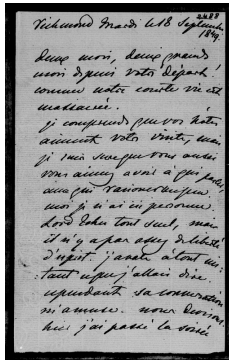 2488
Richmond Mardi le 18 Septembre
1849.
deux mois, deux grands
mois depuis votre départ!
comme notre courte vie est
massacrée.
je comprends que vos hôtes
aiment votre visite, mais
je suis sure que vous aussi
vous aimez avoir à qui parler,
moi je n'ai ici personne.
Lord John tout seul, mais
il n'y a pas assez de liberté
d'esprit. j'avale à tout
tant ce que j'allais dire
cependant sa conversation
m'amuse.
hier j'ai passé la soirée